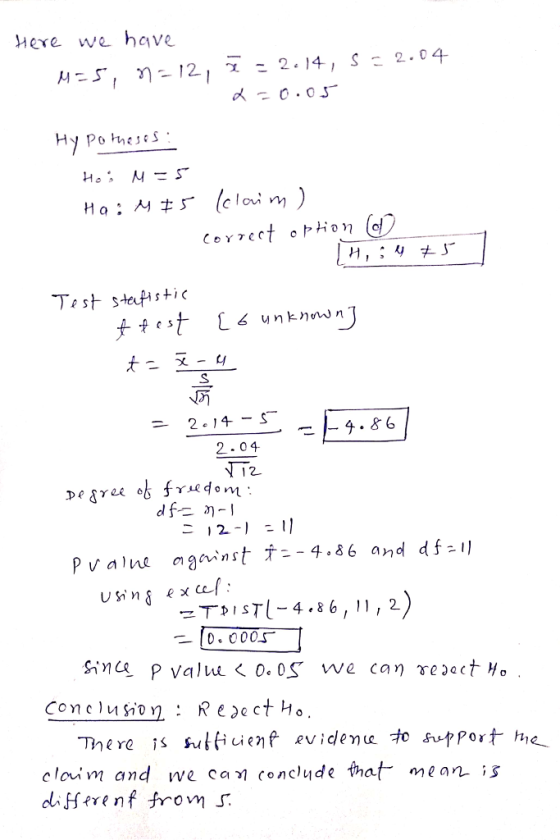 Here we have
μ=5, n=12, x̄ = 2.14, s = 2.04
α = 0.05
Hypotheses:
H₀: μ = 5
Ha: μ ≠ 5 (claim)
correct option (d)
H₁: μ ≠ 5
Test statistic
t test [σ unknown]
t = x̄ - μ
s
√n
= 2.14 - 5 = -4.86
2.04
√12
Degree of freedom:
df = n-1
= 12-1 = 11
P value against t = -4.86 and df=11
using excel:
=TDIST(-4.86, 11, 2)
= 0.0005
Since P value < 0.05 we can reject H₀.
Conclusion: Reject H₀.
There is sufficient evidence to support the
claim and we can conclude that mean is
different from 5.